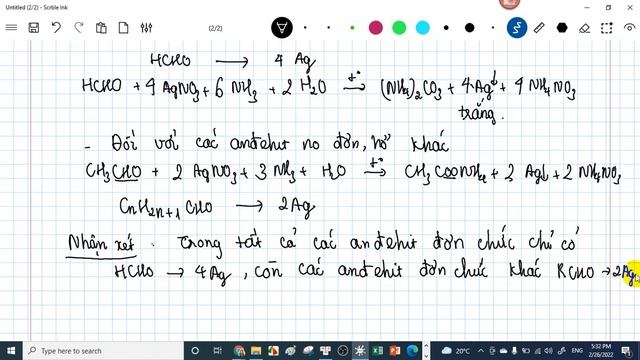 Untitled (2/2) - Scrible Ink
(2/2)
HCHO → 4 Ag
HCHO + 4 AgNO3 + 6 NH3 + 2 H2O →(t°) (NH4)2CO3 + 4Ag↓ + 4 NH4NO3
trắng.
- Đối với các anđehit no đơn, hở khác
CH3CHO + 2 AgNO3 + 3 NH3 + H2O →(t°) CH3COONH4 + 2 Ag↓ + 2 NH4NO3
CnH2n+1 CHO → 2Ag
Nhận xét. Trong tất cả các anđehit đơn chức chỉ có
HCHO → 4Ag, còn các anđehit đơn chức khác RCHO → 2Ag
Type here to search
20°C
ENG
5:32 PM
2/26/2022